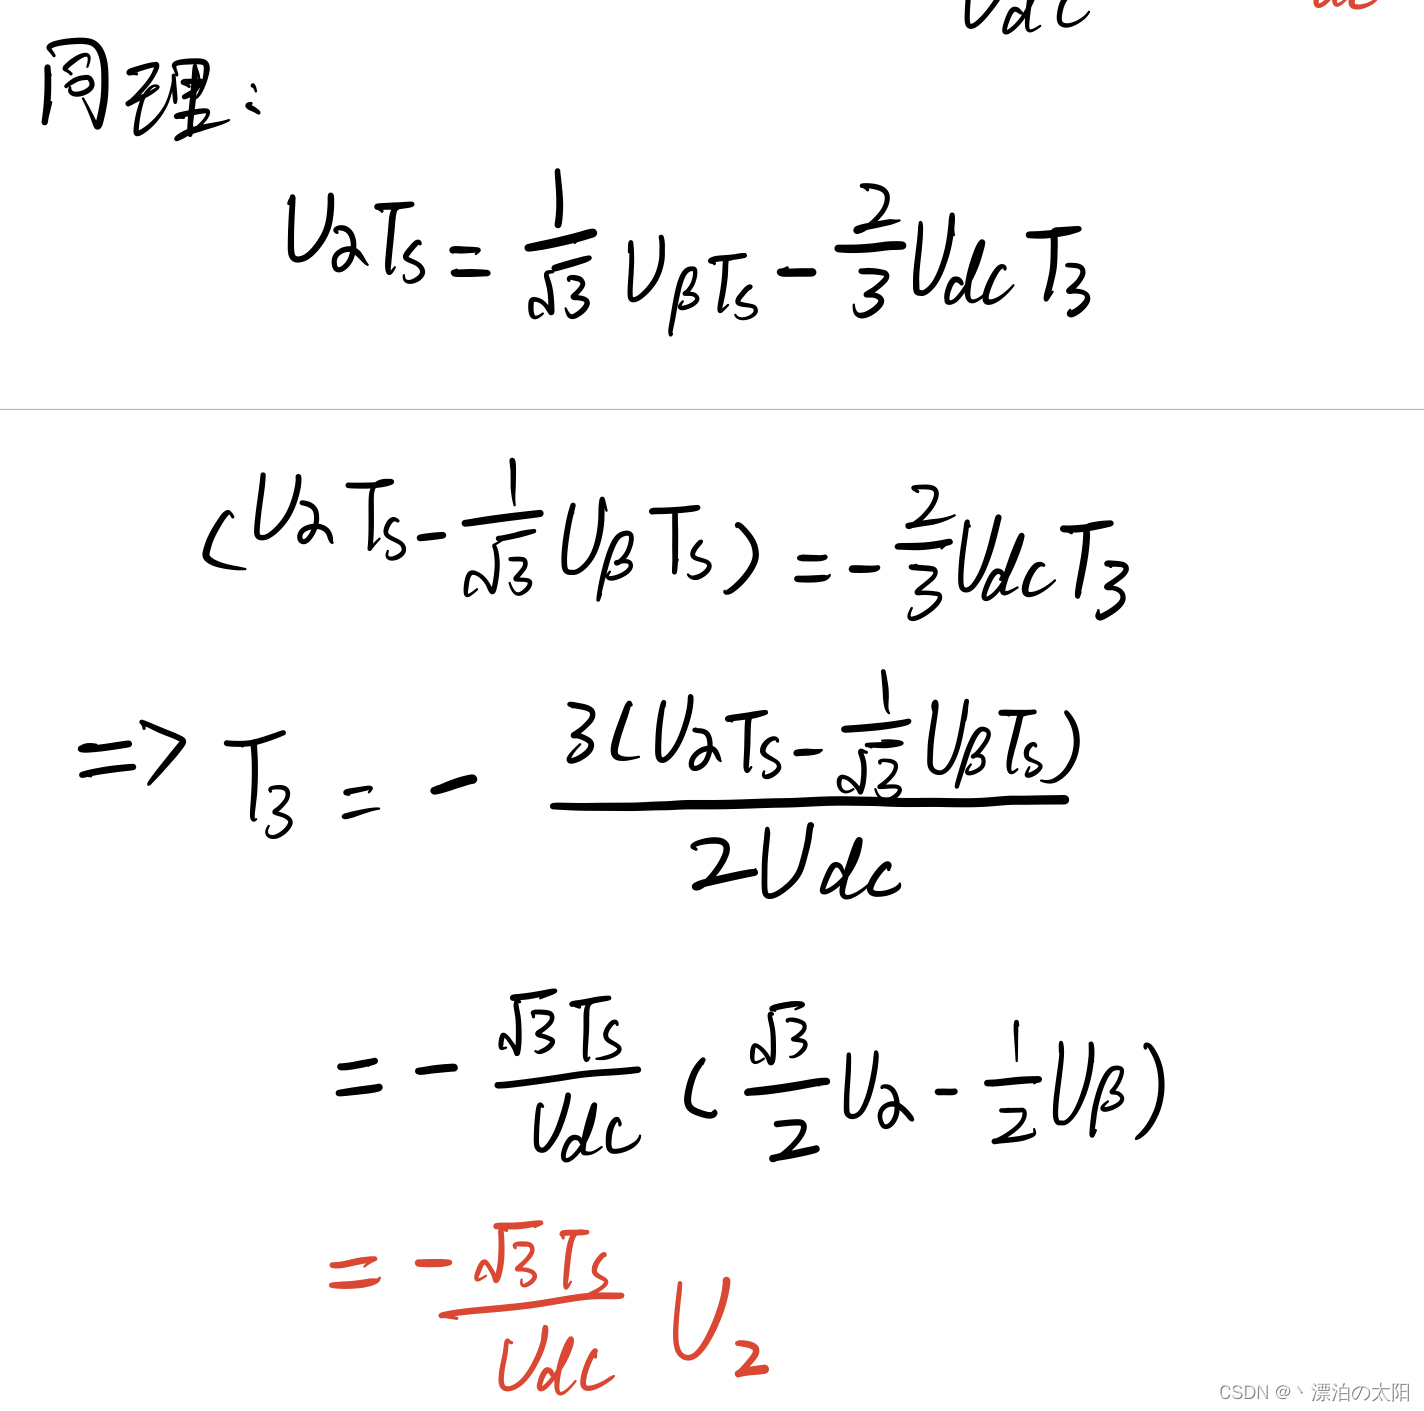 Udc dc
同理：
UαTs = 1/√3 UβTs - 2/3 Udc T3
(UαTs - 1/√3 UβTs) = - 2/3 Udc T3
=> T3 = - 3(UαTs - 1/√3 UβTs) / 2Udc
= - √3Ts/Udc (√3/2 Uα - 1/2 Uβ)
= -√3Ts/Udc U2
CSDN @丶漂泊の太阳